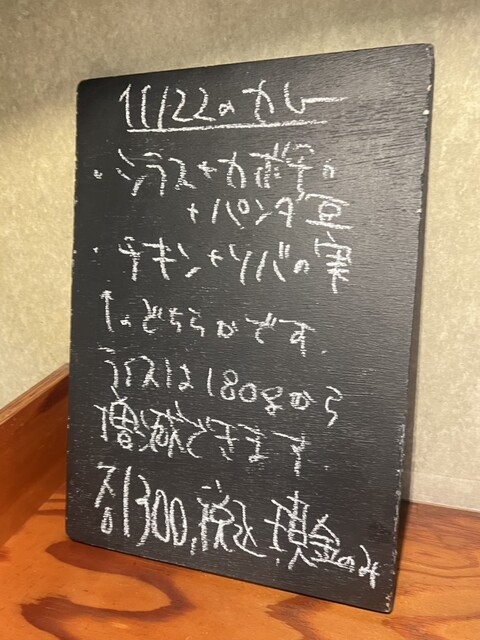 11/22のカレー
・シラス+カボチャ
+パンダ豆
・チキン+ソバの実
↑のどちらかです.
ライスは180gから
増減できます.
各1300,税込 現金のみ